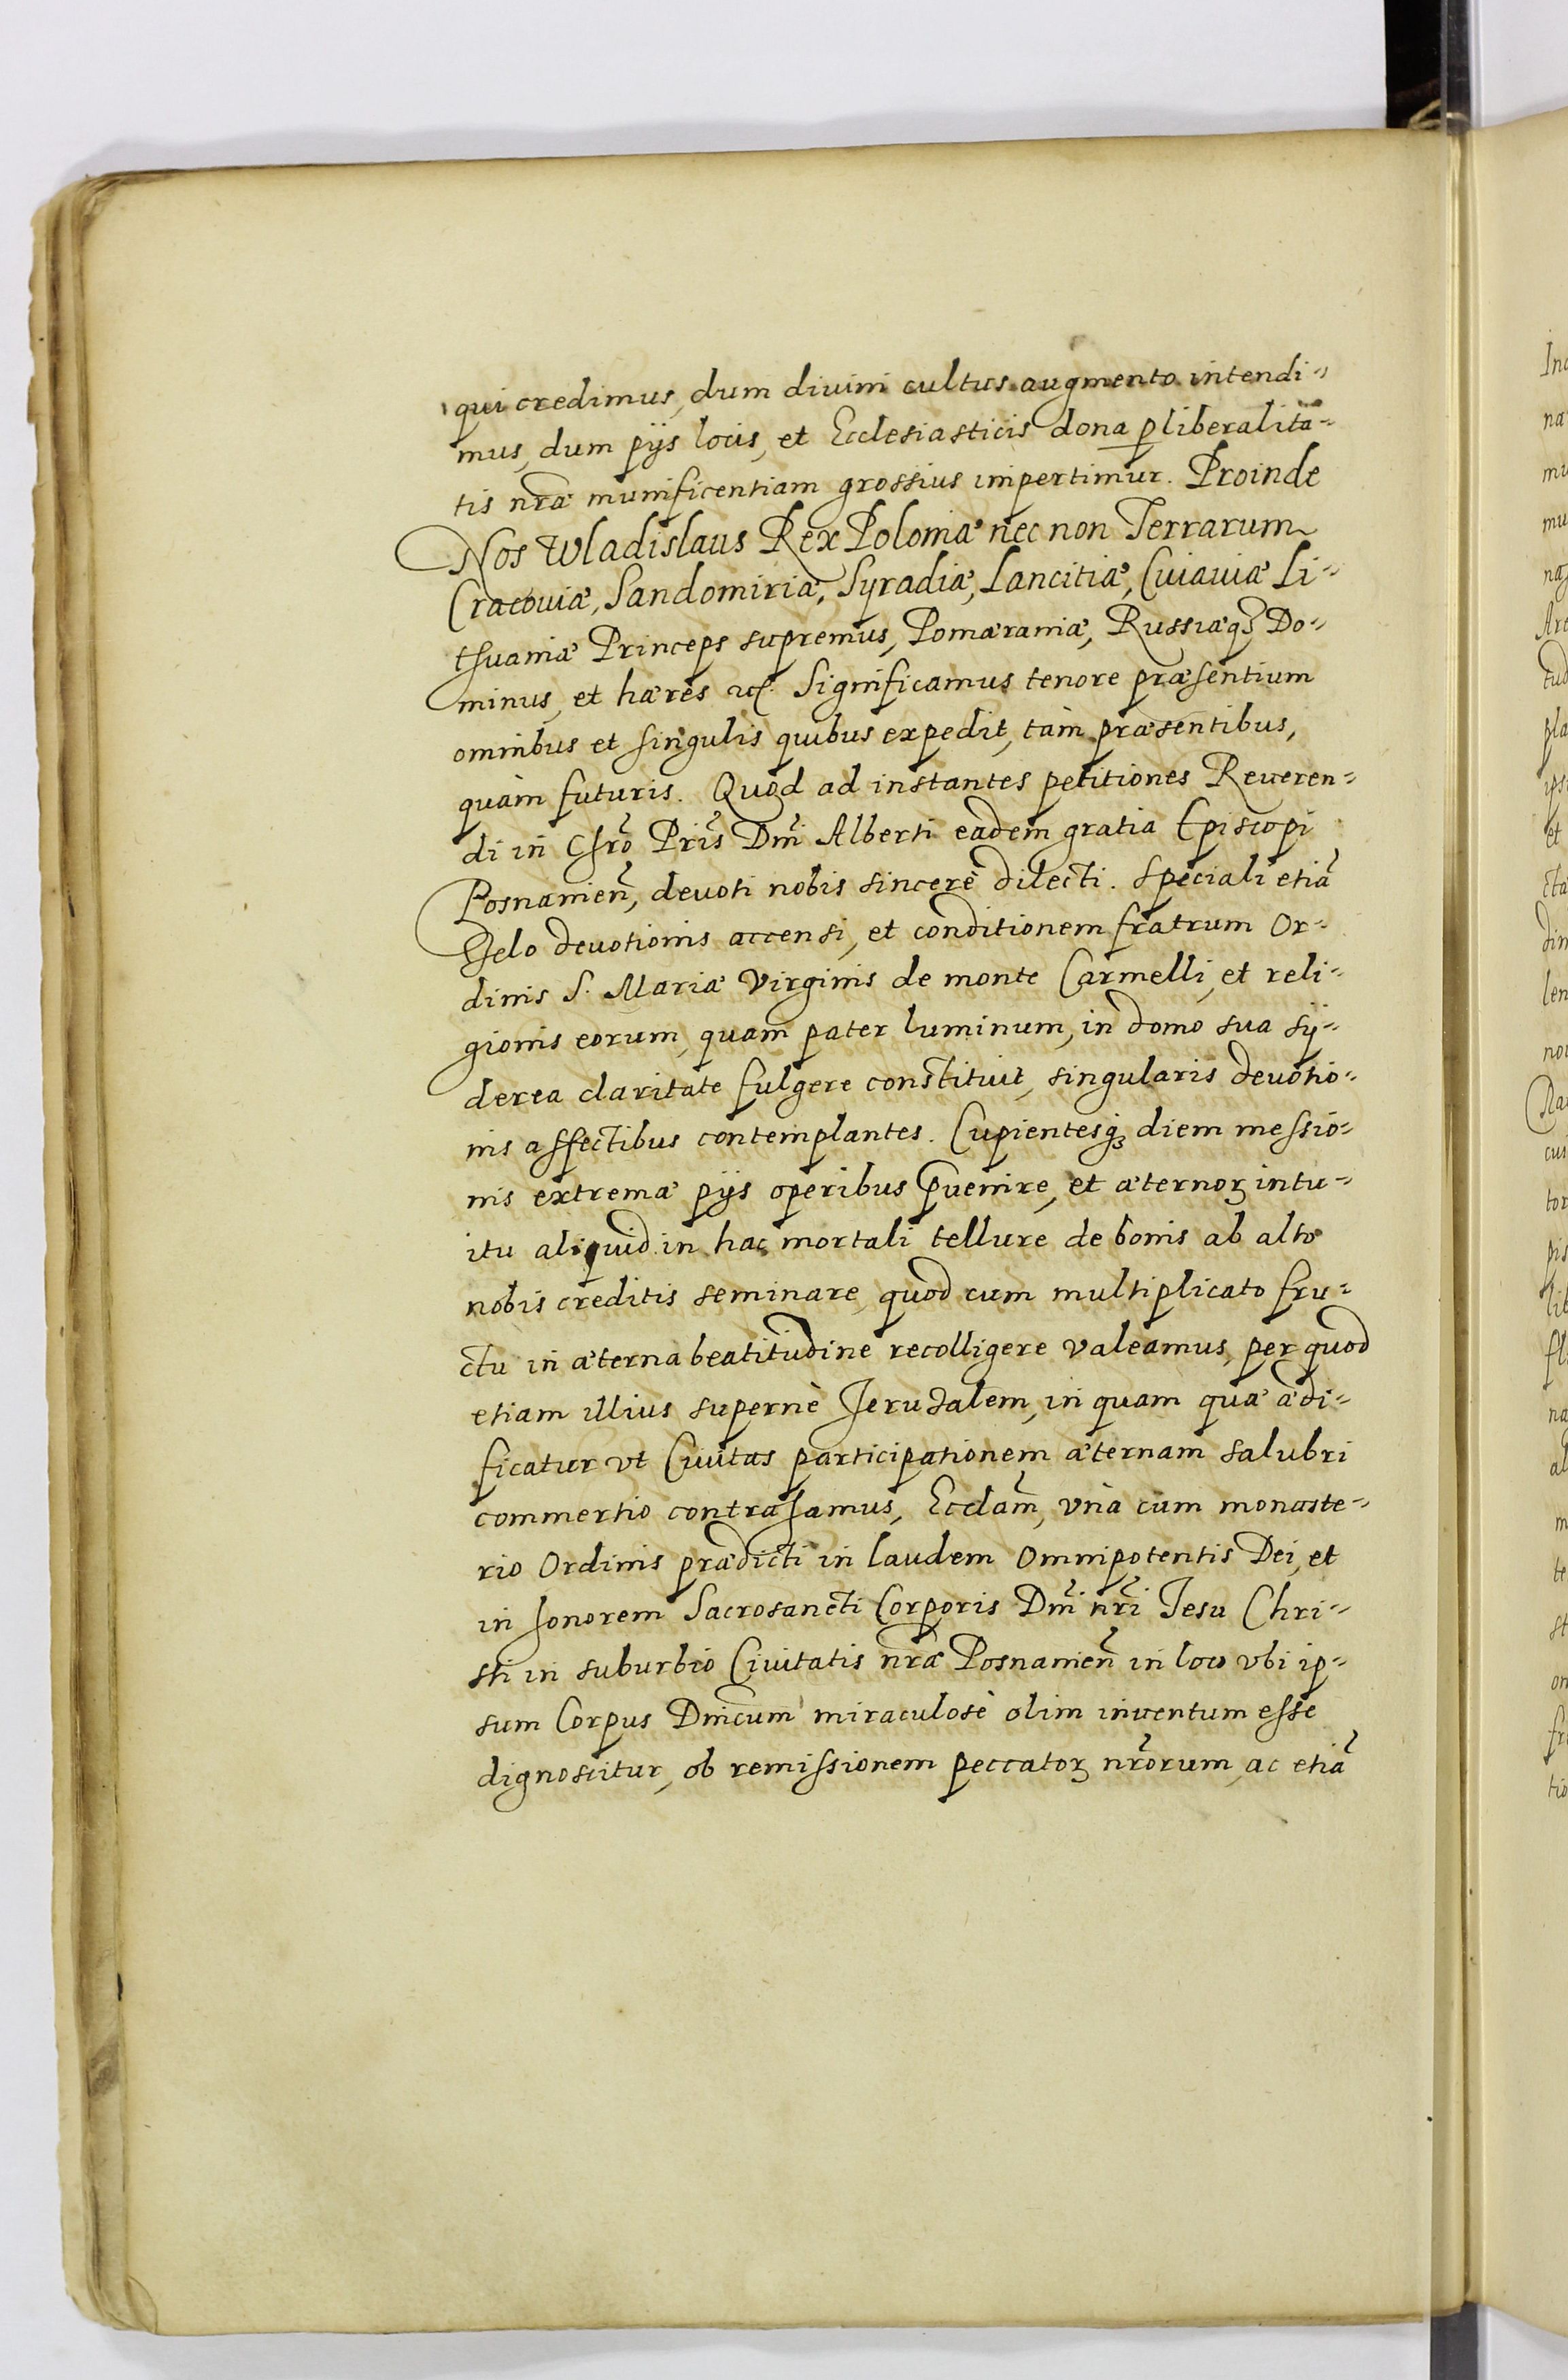 qui credimus, dum divini cultus augmento intendi-
mus, dum pijs locis, et Ecclesiasticis dona p liberalita-
tis nr̃æ munificentiam grossius impertimur. Proinde
Nos Wladislaus Rex Poloniæ nec non Terrarum
Cracoviæ, Sandomiriæ, Syradiæ, Lancitiæ, Cuiauiæ Li-
thuaniæ Princeps supremus, Pomæraniæ, Russiæqꝫ Do-
minus, et hæres Significamus tenore præsentium
omnibus et singulis quibus expedit, tàm præsentibus,
quàm futuris. Quod ad instantes petitiones Reueren-
di in Chrõ Pris̃ Dnĩ Alberti eadem gratia Episcopi
Posnanien̄, devoti nobis sincerè dilecti. Speciali etiã
Zelo devotionis accensi, et conditionem fratrum Or-
dinis S. Mariæ Virginis de monte Carmelli, et reli-
gionis eorum, quam pater luminum, in domo sua sy-
derea claritate fulgere constituit, singularis devotio-
nis affectibus contemplantes. Cupientesqꝫ diem messio-
nis extremæ pijs operibus p̃uenire, et æternoꝝ intu-
itu aliquid in hac mortali tellure de bonis ab alto
nobis creditis seminare, quod cum multiplicato fru-
ctu in æterna beatitudine recolligere valeamus, per quod
etiam illius supernè Jerusalem, in quam quæ ædi-
ficatur vt Ciuitas participationem æternam salubri
commertio contrahamus, Eccla͠m, vnà cum monaste-
rio Ordinis prædicti in laudem Omnipotentis Dei, et
in honorem Sacrosancti Corporis Dnĩ nrĩ Jesu Chri-
sti in suburbio Ciuitatis nr̃æ Posnanien̄ in loco vbi ip-
sum Corpus Dnĩcum miraculosè olim inventum esse
dignoscitur, ob remissionem peccatoꝝ nr̃orum, ac etiã